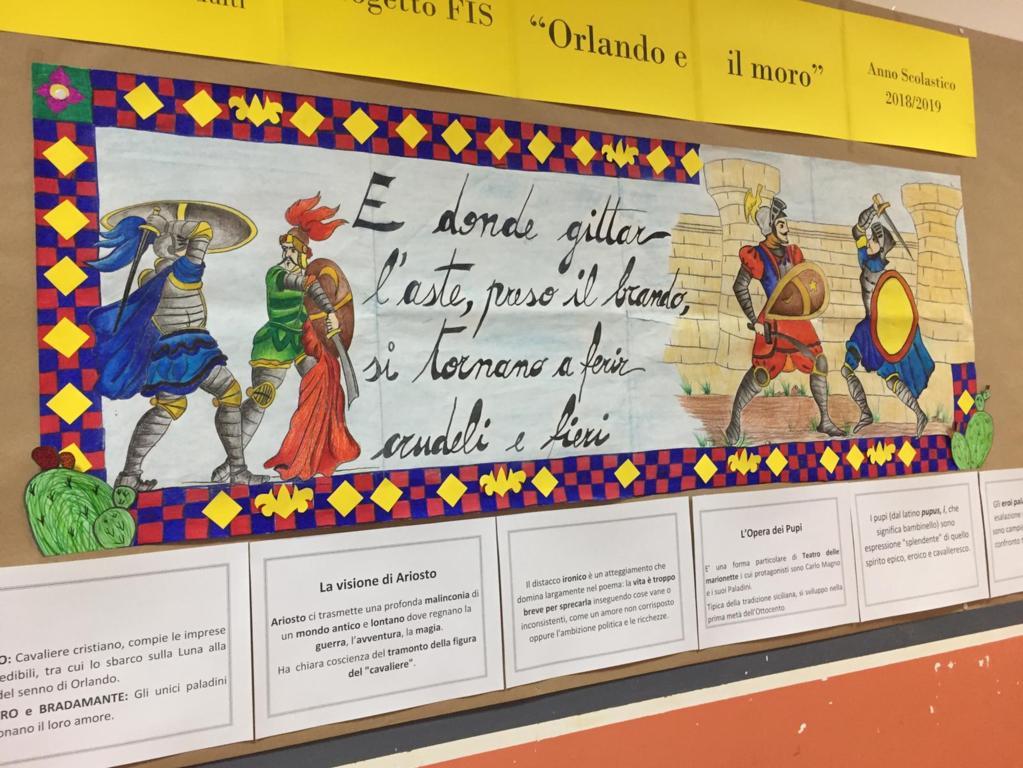 Progetto FIS
“Orlando e il moro”
Anno Scolastico
2018/2019
E donde gittar
l'aste, preso il brando,
si tornano a ferir
crudeli e fieri
O: Cavaliere cristiano, compie le imprese
edibili, tra cui lo sbarco sulla Luna alla
del senno di Orlando.
RO e BRADAMANTE: Gli unici paladini
onano il loro amore.
La visione di Ariosto
Ariosto ci trasmette una profonda malinconia di
un mondo antico e lontano dove regnano la
guerra, l'avventura, la magia.
Ha chiara coscienza del tramonto della figura
del "cavaliere".
Il distacco ironico è un atteggiamento che
domina largamente nel poema: la vita è troppo
breve per sprecarla inseguendo cose vane o
inconsistenti, come un amore non corrisposto
oppure l'ambizione politica e le ricchezze.
L'Opera dei Pupi
E' una forma particolare di Teatro delle
marionette i cui protagonisti sono Carlo Magno
e i suoi Paladini.
Tipica della tradizione siciliana, si sviluppo nella
prima metà dell'Ottocento.
I pupi (dal latino pupus, i, che
significa bambinello) sono
espressione "splendente" di quello
spirito epico, eroico e cavalieresco.
Gli eroi pal
esalazione
sono campi
confronto t